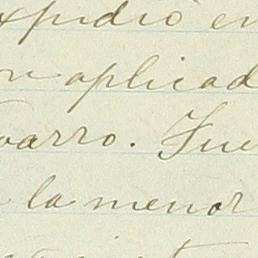 xpidió en
on aplicad
varro. Fue
la menor